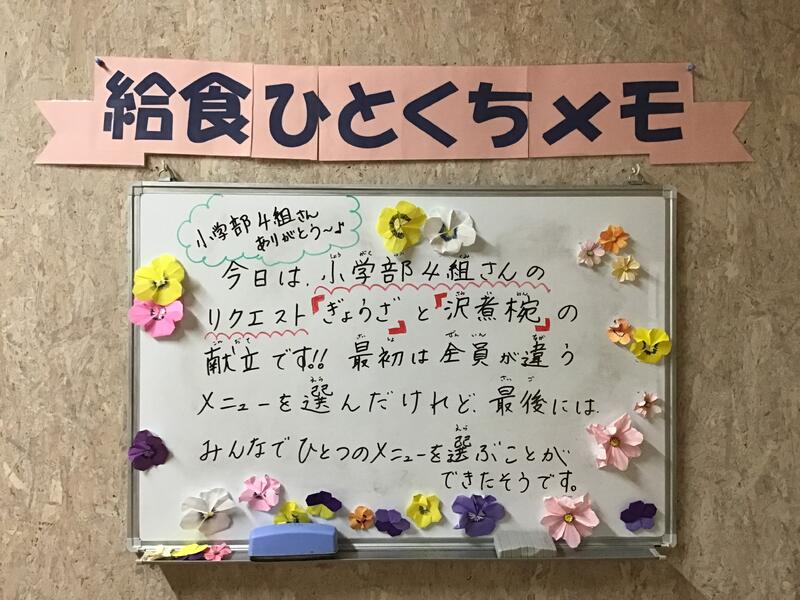 給食ひとくちメモ
小学部4組さん
ありがとう〜♪
今日は、小学部4組さんの
リクエスト『ぎょうざ』と『沢煮椀』の
献立です!! 最初は全員が違う
メニューを選んだけれど、最後には、
みんなでひとつのメニューを選ぶことが
できたそうです。